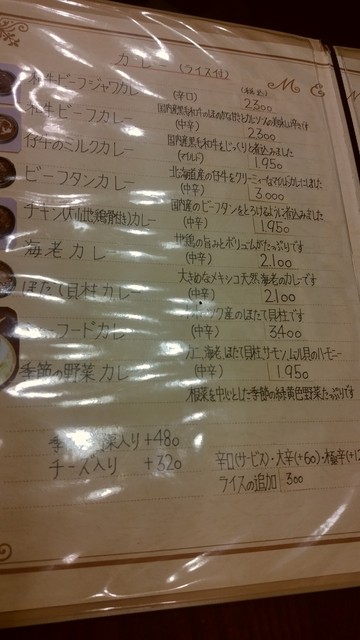 カレー (ライス付)
ME
(税込)
和牛ビーフジャワカレー (辛口) 2300
国内産黒毛和牛のほのかな甘さとしたビーフの美味い辛さです
和牛ビーフカレー (中辛) 2300
国内産黒毛和牛をじっくりと煮込みました
仔牛のミルクカレー (マイルド) 1950
北海道産の仔牛をクリーミーなマイルドカレーにしました
ビーフタンカレー (中辛) 3,000
国産のビーフタンをとろけるように煮込みました
チキン(大山地鶏骨付)カレー (中辛) 1950
地鶏の旨みとボリュームがたっぷりです
海老カレー (中辛) 2.100
大きめなメキシコ天然海老のカレーです
ほたて貝柱カレー (中辛) 2.100
ホーツク産のほたて貝柱です
ーフードカレー (中辛) 3400
カニ、海老、ほたて貝柱、サーモン、ムール貝のハーモニー
季節の野菜カレー (中辛) 1950
根菜を中心とした季節の緑黄色野菜たっぷりです
季 菜入り +480
チーズ入り +320
辛口(サービス)・大辛(+60)・極辛(+1
ライスの追加 300